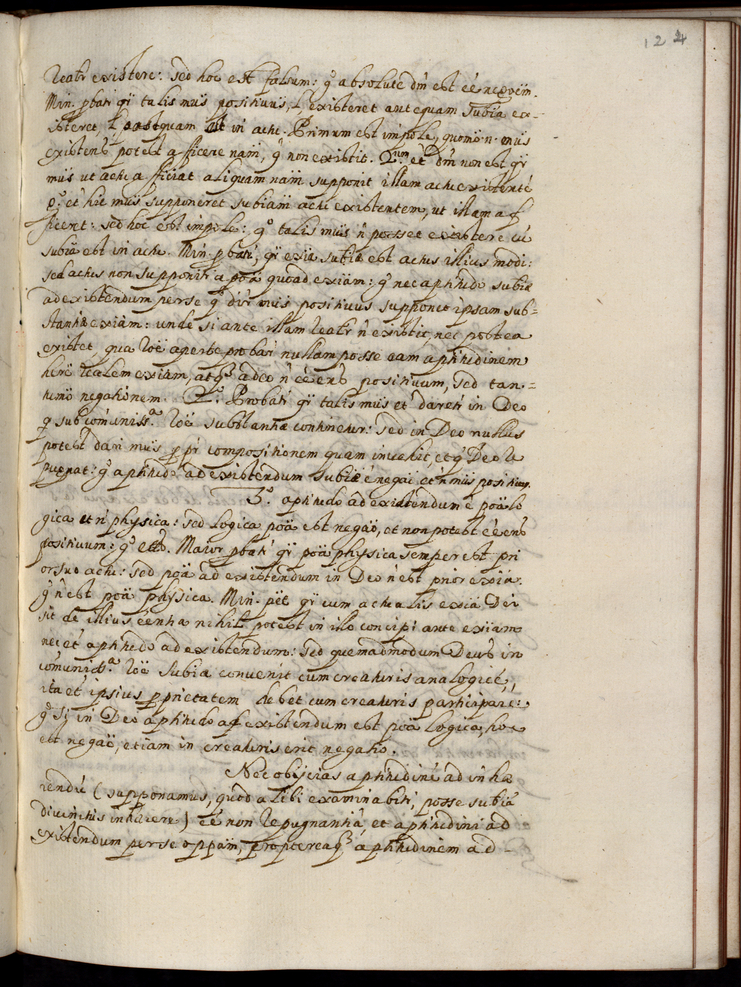 124
realr existere: sed hoc est falsum: gͦ absolute dm̃ est ee ñ
Min. pbatr qr̃ talis mus positiuus, l existeret antequam subia ex-
isteret, l postquam in actu. Primum est impole, quomõ n. mus
existens potest afficere nam̃, q̃ non existit. 2um et dm̃ non est qr̃
mus ut actu afficiat aliquam nam̃ supponit illam actu existente
gͦ: et hic mus supponeret subiam̃ actu existentem, ut illam af
ficeret: sed hoc est impole: gͦ talis mus ñ posset existere cũ
subia est in actu. Min. pbatr, qr̃ exia subiæ est actus illius modi:
sed actus non supponitr a poa quoad exiam: gͦ nec aptitudo subiæ
ad existendum per se gͦ dm̃ mus positiuus supponet ipsam sub-
stantiæ exiam: unde si ante illam realr ñ existit, nec postea
existet, qua roẽ aperte probatr nullam posse eam aptitudinem
here realem exiam, atqͥ adeo ñ eẽ ens posituum, sed tan-
tumo negationem. 2ͦ. Probatr qr̃ talis mus et daretr in Deo
q̃ sub comuniss.ᵃ roẽ substantiæ continetur: sed in Deo nullus
potest dari mus ppr̃ compositionem quam inuehit, et qͥ Deo re
pugnat: gͦ aptitudo ad existendum subiæ ẽ negao, et ñ mus positiuus.
3ͦ. aptitudo ad existendum ẽ poa lo
gica et ñ physica: sed logica poa est negao, et non potest eẽ ens
positiuum: gͦ Maior pbatr qr̃ poa physica semper est pri
or suo actu: sed poa ad existendum in Deo ñ est prior exia:
gͦ ñ est poa physica. Min. pet qr̃ cum actualis exia Dei
sit de illius eẽntia nihil potest in illo concipi ante exiam
nec et aptitudo ad existendum: sed quemadmodum Deus in
comuniss.ᵃ roẽ subia convenit cum creaturis analogice,
ita et ipsius pprietatem debet cum creaturis participare:
gͦ si in Deo aptitudo ad existendum est poa logica, hoc
est negao, etiam in creaturis erit negatio.
Nec obijcias aptitudinẽ ad inhæ
rendũ (supponamus, quod alibi examinabitr, posse subiã
diuinitus inhærere) eẽ non repugnantiã, et aptitudini ad
existendum per se oppam̃, proptereaqͥ aptitudinem ad-